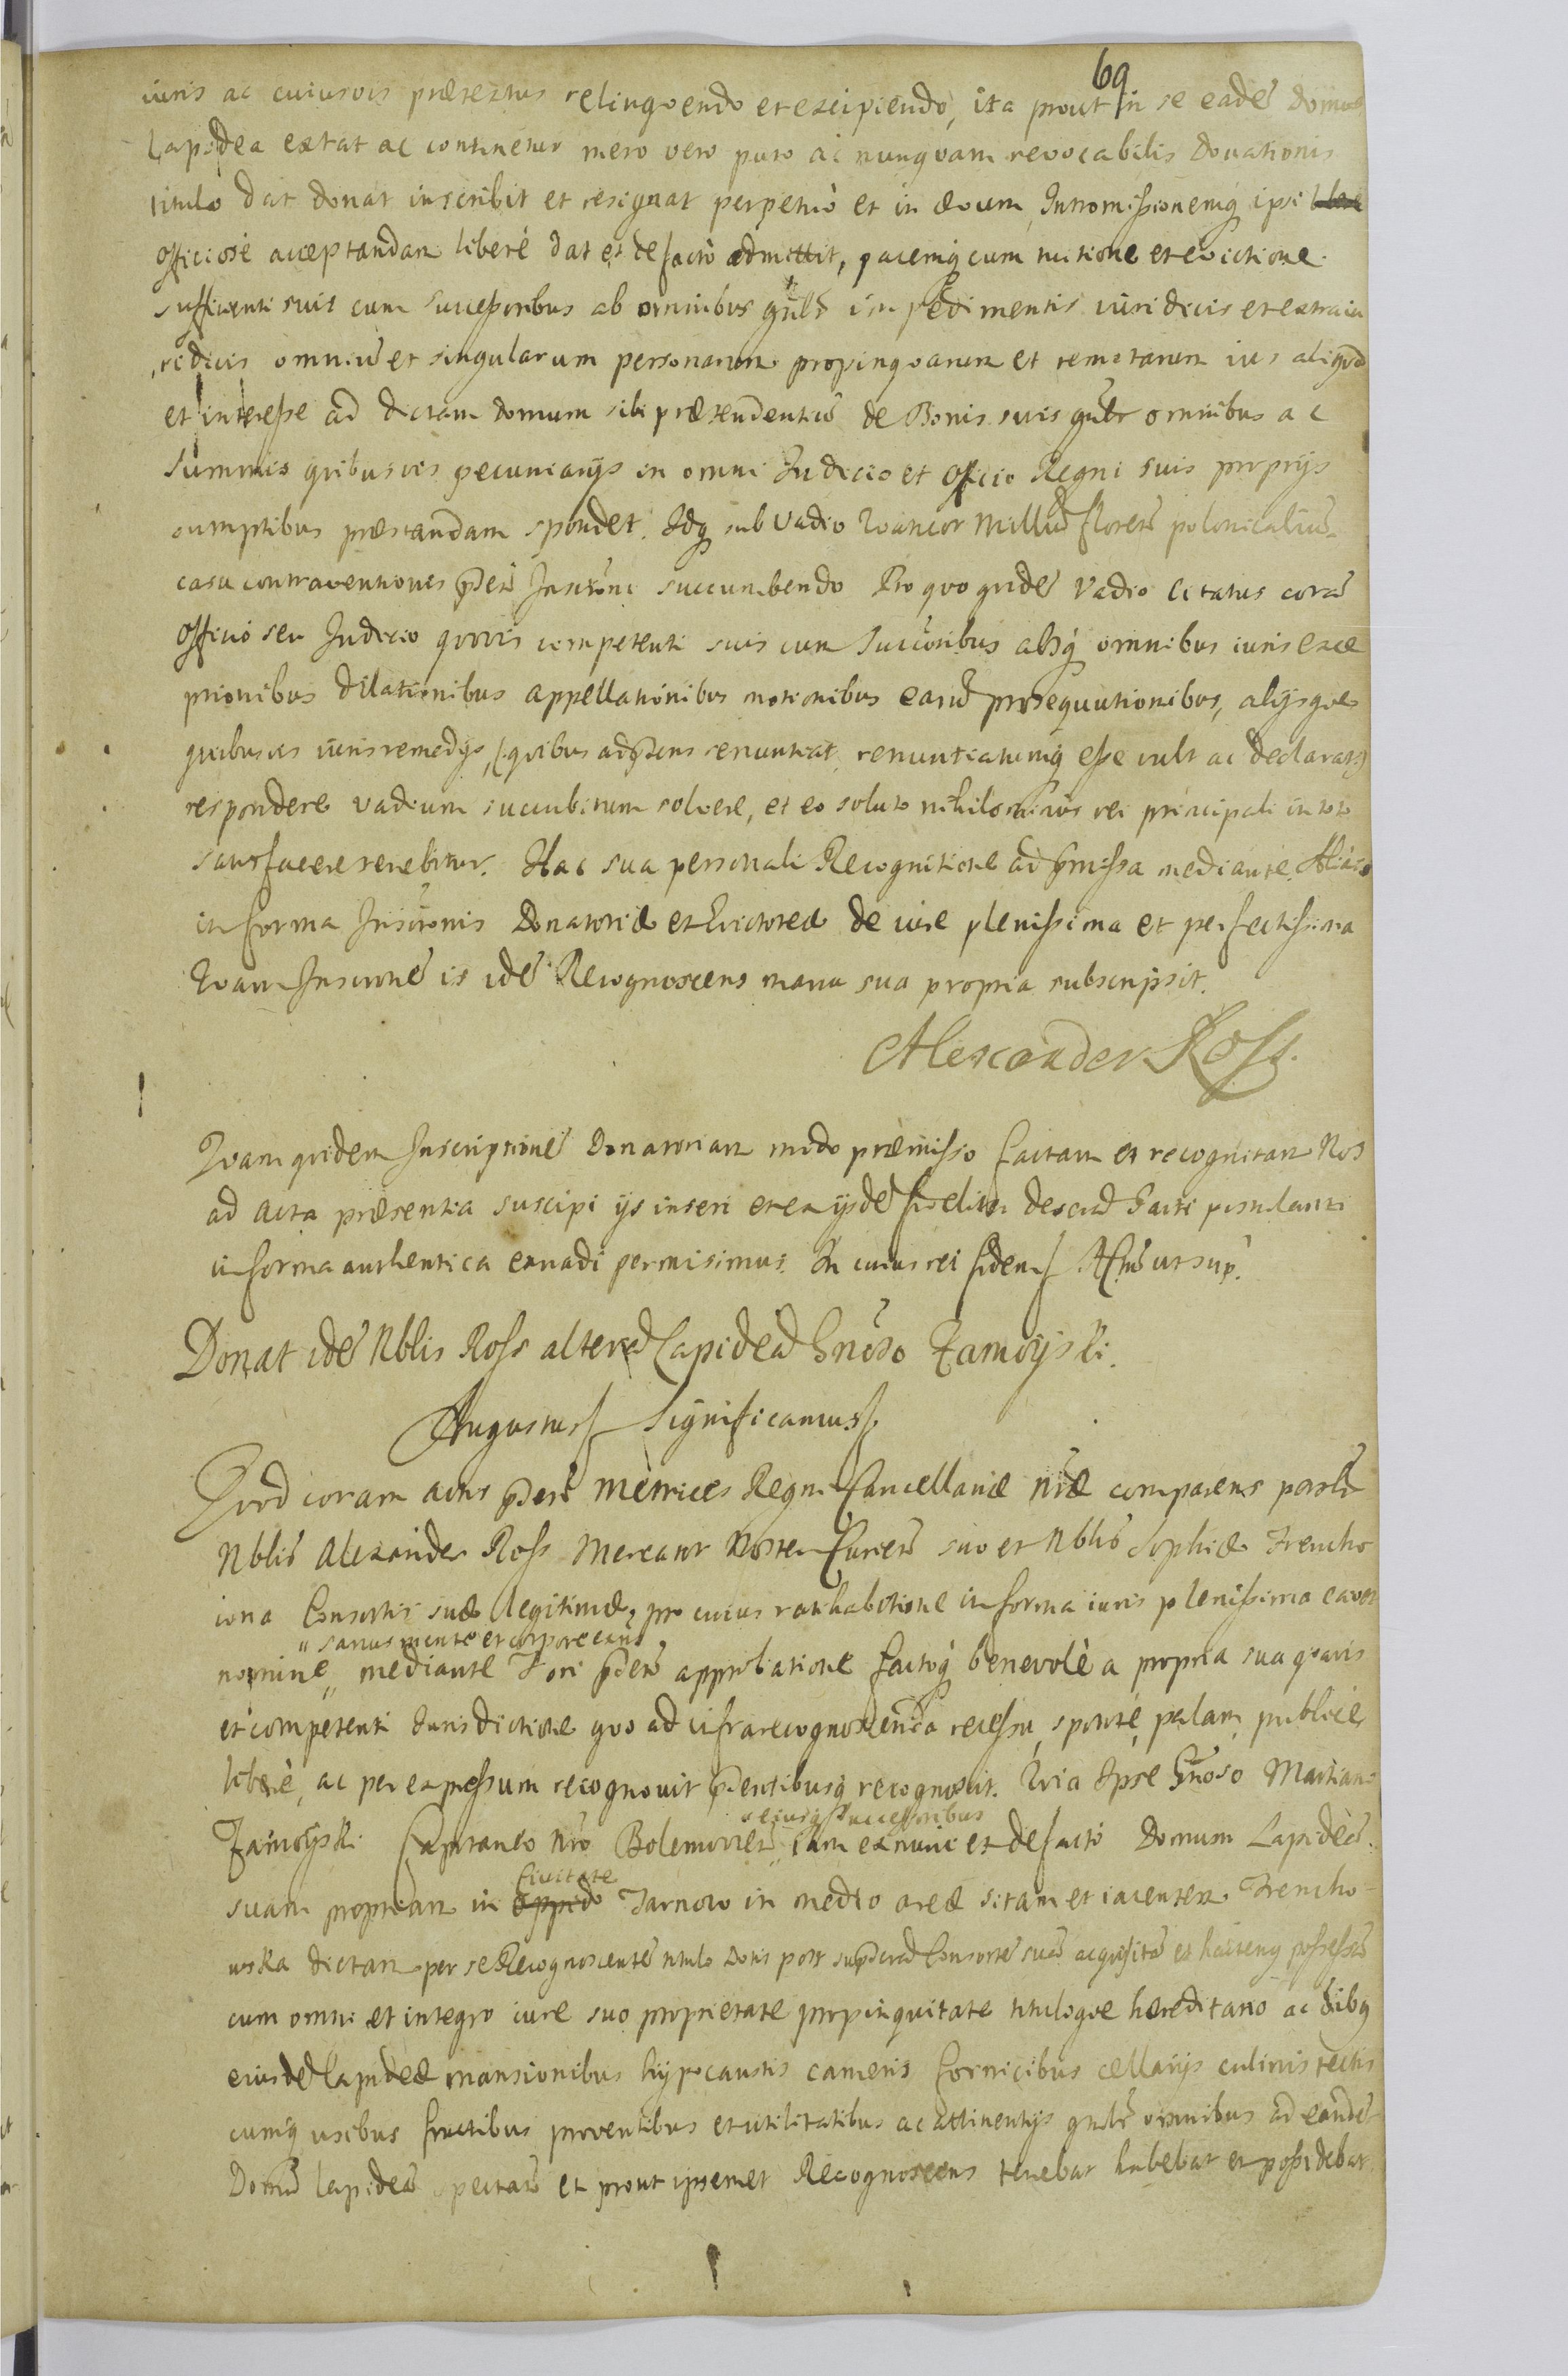 69
iuris ac cuiusvis prætextus relinquendo et excipiendo, ita prout in se eadẽ domus
Lapidea extat ac continetur mero vero puro ac nunquam revocabilis donationis
titulo dat donat inscribit et resignat perpetuò et in ævum, Intromissionemq̃ ipsi
officiosè acceptandam liberè dat et de facto admittit, pacemq̃ cum tuitione et evictione
sufficienti suis cum successoribus ab omnibus gñlr impedimentis iuridicis et extraiu
ridicis omniũ et singularum personarum propinquarum et remotarum ius aliquod
et interesse ad dictam domum sibi prætendentiũ de Bonis suis gñlr omnibus ac
summis quibusvis pecuniarijs in omni Iudicio et officio Regni suis proprijs
sumptibus præstandam spondet. Idq̃ sub vadio Quatuor Milliũ floreñ polonicaliũ
casu contraventionis p̃nti Inscr̃oni succumbendo Pro quo quidẽ vadio citatus corã
officio seu Iudicio quovis competenti suis cum succ̃oribus absq̃ omnibus iuris exce
ptionibus dilationibus appellationibus motionibus earũd prosequutionibus, alijsque
quibusvis iuris remedijs, (quibus ad p̃sens renuntiat renuntiatumq̃ esse vult ac declarat)
respondere vadium succubitum solvere, et eo soluto nihilominus rei principali in toto
satisfacere tenebitur. Hac sua personali Recognitione ad p̃missa mediante.
in forma Inscr̃onis Donatoriæ et Evictoreæ de iure plenissima et perfectissima
Quam Inscr̃onẽ is idẽ Recognoscens manu sua propria subscripsit.
Alexander Ross.
Quam quidem Inscriptionẽ Donatoriam modo præmisso factam et recognitam Nos
ad acta præsentia suscipi ijs inseri et ex ijsdẽ fideliter descr̃ Parti postulanti
in forma authentica extradi permisimus. In cuius rei fidem Actũ ut sup̃.
Donat idẽ Nblis Ross alterã Lapideã Gñoso Zamoyski.
Augustus Significamus
Quod coram actis p̃ntibꝰ Metrices Regni Cancellariæ nr̃æ comparens persltr
Nblis Alexander Ross Mercator Noster suo et Nblis Sophiæ Trencho
iona Consortis suæ legitimæ, pro cuius ratihabitione in forma iuris plenissima cavet
"sanus mente et corpore
nomine " mediante Fori approbatione factoq̃ benevolè a propria sua quavis
et competenti Iurisdictione quo ad infrarecognoscenda recessu, spontè, palam, publicè
liberè, ac per expressum recognovit p̃sentibusq̃ recognoscit. Quia Ipse Gñoso Martiano
eiusq̃ Successoribus
Zamoyski Capitaneo nr̃o iam ex nunc et de facto Domum Lapideã
Civitate
suam propriam in oppido Tarnow in medio areæ sitam et iacentem Trencho-
wska dictam per se Recognoscentẽ titulo Dotis post Consortẽ suã acquisitã et hactenq̃ possessã
cum omni et integro iure suo proprietate propinquitate tituloque hæreditario ac õibꝰ
eiusdẽ Lapideæ mansionibus hypocaustis cameris fornicibus cellarijs culinis tectis
cumq̃ usibus fructibus proventibus et utilitatibus ac attinentijs gñlr omnibus ad eandẽ
Domũ lapideã spectañ et prout ipsemet Recognoscens tenebat habebat et possidebat